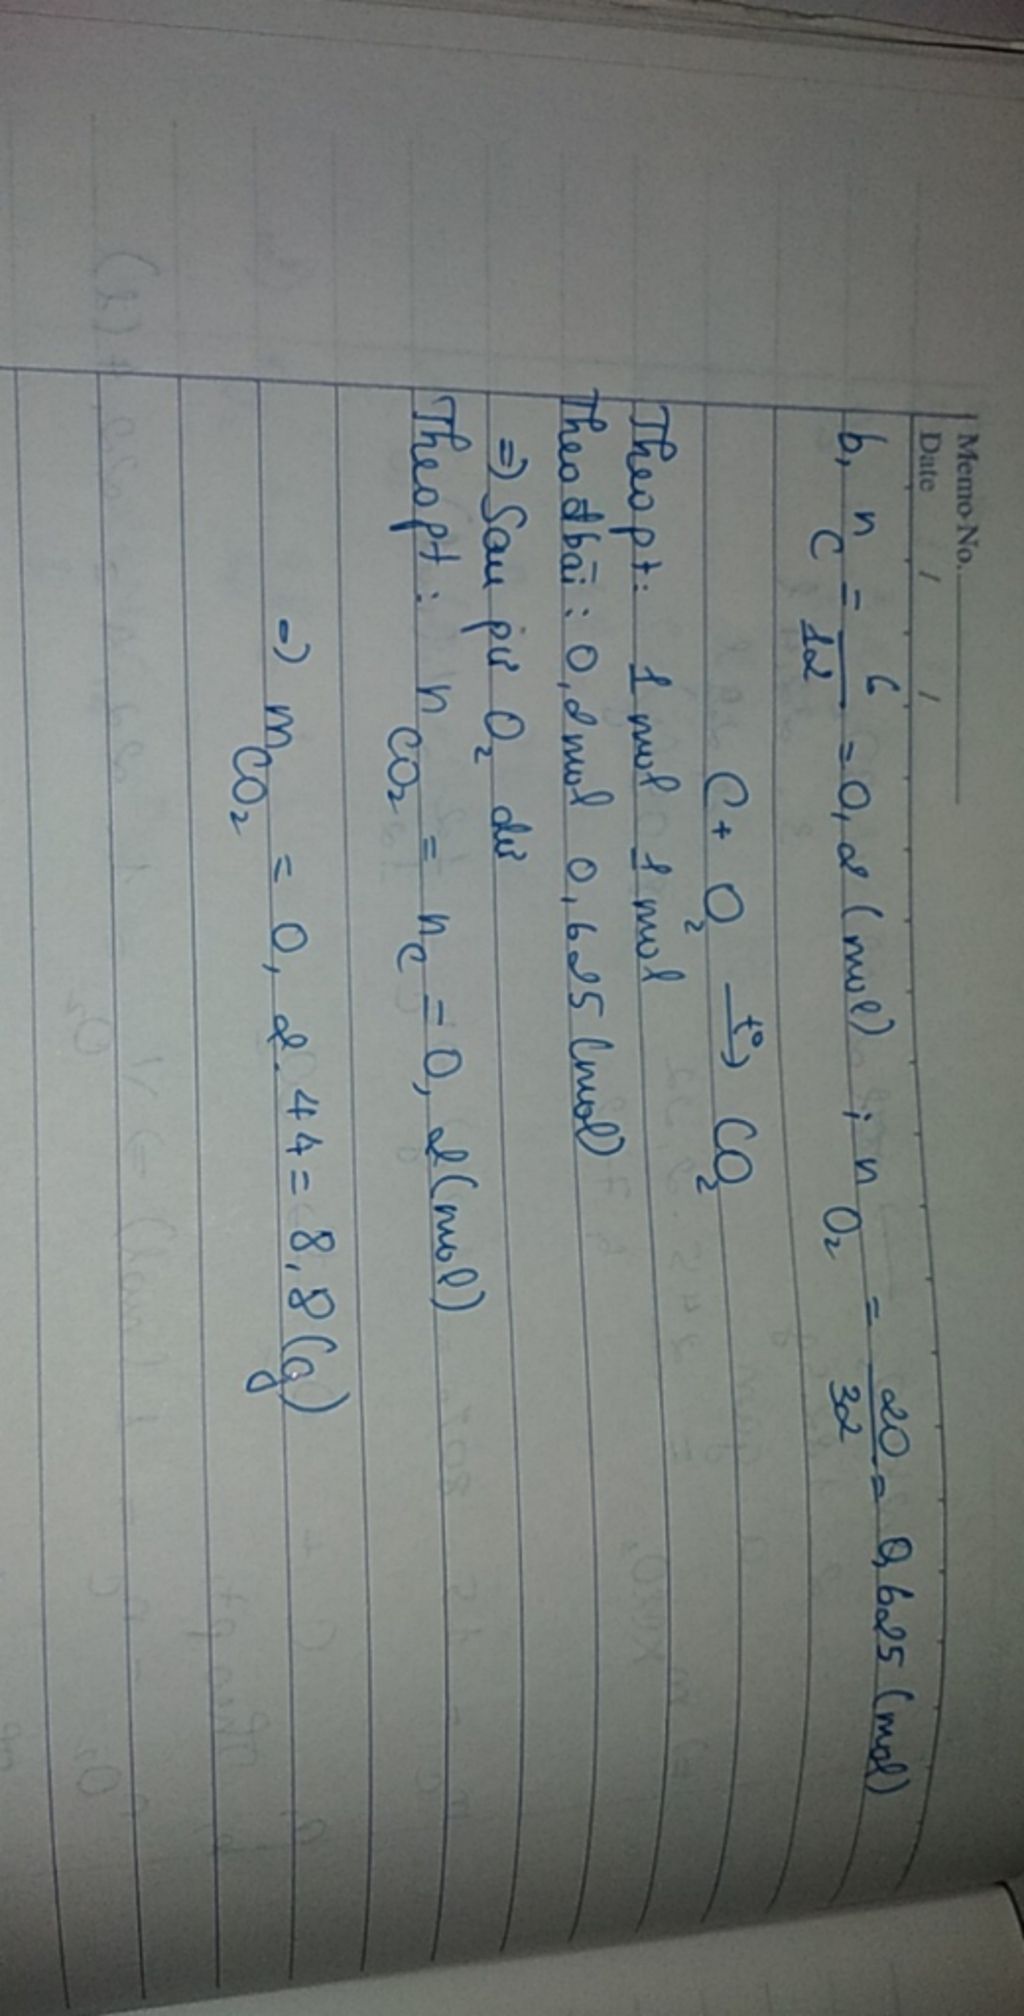 Memo No.
Date / /
b, n C = 6/12 = 0,2 (mol) ; n O2 = 20/32 = 0,625 (mol)
C + O2 t°→ CO2
Theo pt: 1 mol 1 mol
Theo đbài : 0,2 mol 0,625 (mol)
=) Sau pư O2 dư
Theo pt : n CO2 = n C = 0,2 (mol)
=) m CO2 = 0,2.44 = 8,8 (g)